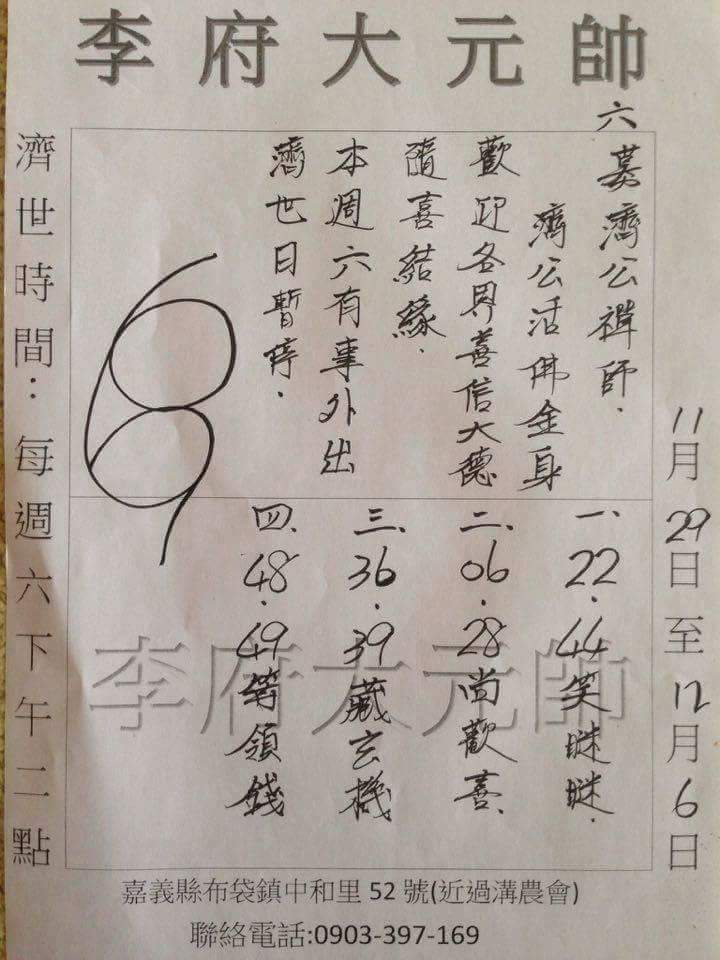 李府大元帥
11月29日至12月6日
六募濟公禪師.
濟公活佛金身
歡迎各界善信大德
隨喜結緣.
本週六有事外出
濟世日暫停.
一、22.44笑瞇瞇.
二、06.28尚歡喜.
三、36.39藏玄機
四、48.49等領錢
李府大元帥
濟世時間:每週六下午二點
嘉義縣布袋鎮中和里52號(近過溝農會)
聯絡電話:0903-397-169